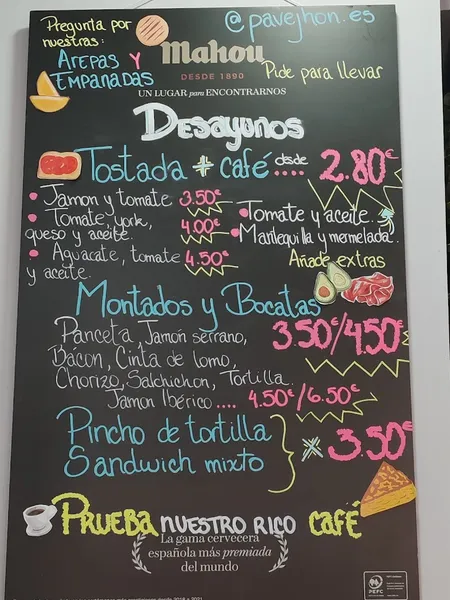 Pregunta por
nuestras:
AREPAS Y
EMPANADAS
@pavejhon.es
Mahou
DESDE 1890
UN LUGAR para ENCONTRARNOS
Pide para llevar
DESAYUNOS
Tostada + café desde .... 2.80€
• Jamon y tomate 3.50€
• Tomate, york,
queso y aceite. 4.00€
• Aguacate, tomate 4.50€
y aceite.
• Tomate y aceite.
• Mantequilla y mermelada.
Añade extras
Montados y Bocatas
Panceta, Jamón serrano, 3.50€/4.50€
Bácon, Cinta de lomo,
Chorizo, Salchichon, Tortilla.
Jamon Ibérico .... 4.50€/6.50€
Pincho de tortilla
Sandwich mixto
x 3.50€
PRUEBA NUESTRO RICO CAFÉ
La gama cervecera
española más premiada
del mundo
PEFC